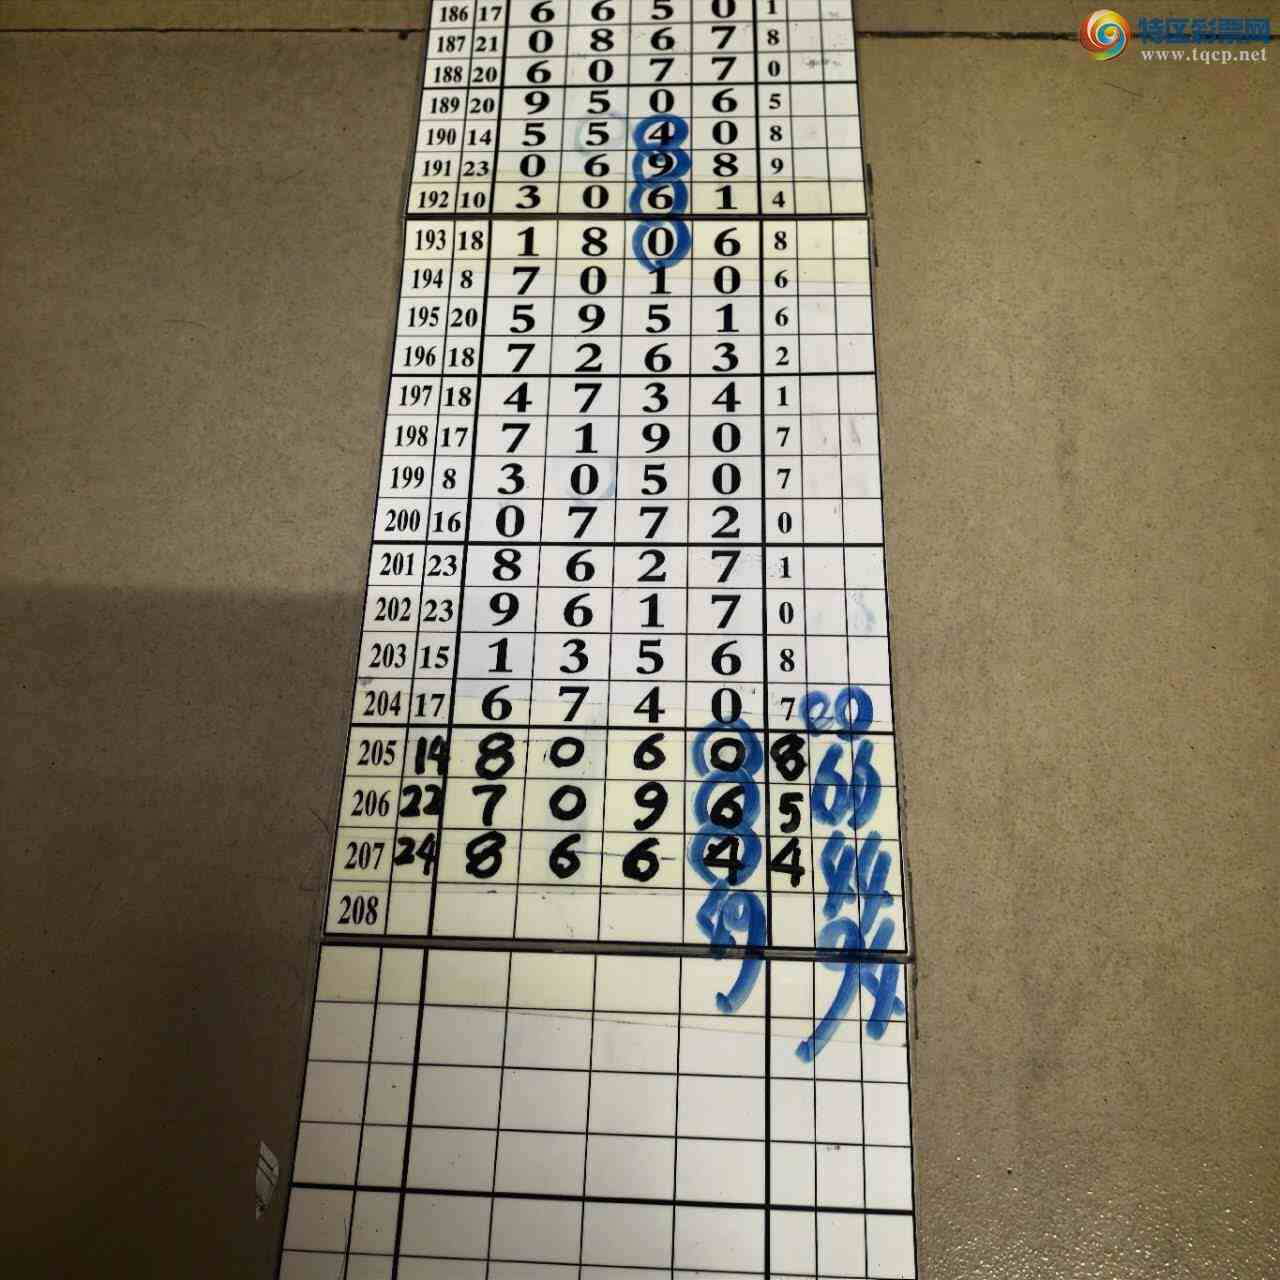 特区彩票网
www.tqcp.net
186 17 6 6 5 0 1
187 21 0 8 6 7 8
188 20 6 0 7 7 0
189 20 9 5 0 6 5
190 14 5 5 4 0 8
191 23 0 6 9 8 9
192 10 3 0 6 1 4
193 18 1 8 0 6 8
194 8 7 0 1 0 6
195 20 5 9 5 1 6
196 18 7 2 6 3 2
197 18 4 7 3 4 1
198 17 7 1 9 0 7
199 8 3 0 5 0 7
200 16 0 7 7 2 0
201 23 8 6 2 7 1
202 23 9 6 1 7 0
203 15 1 3 5 6 8
204 17 6 7 4 0 7 00
205 14 8 0 6 0 8
206 22 7 0 9 6 5 66
207 24 8 6 6 4 4 44
208 49
94